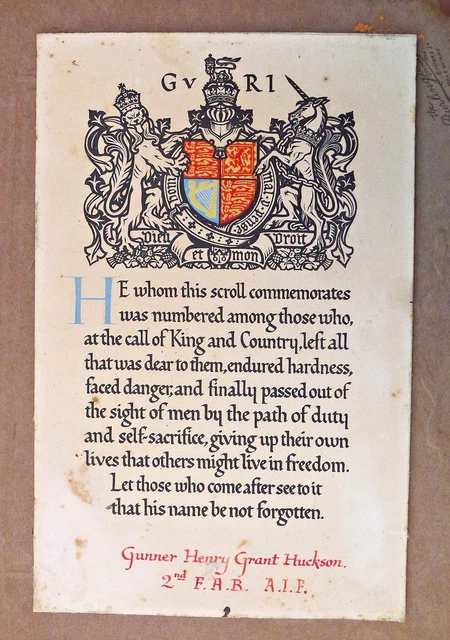 GV RI
Honi soit qui mal y pense
Dieu et mon Droit
HE whom this scroll commemorates
was numbered among those who,
at the call of King and Country, left all
that was dear to them, endured hardness,
faced danger, and finally passed out of
the sight of men by the path of duty
and self-sacrifice, giving up their own
lives that others might live in freedom.
Let those who come after see to it
that his name be not forgotten.
Gunner Henry Grant Huckson.
2nd F.A.B. A.I.F.